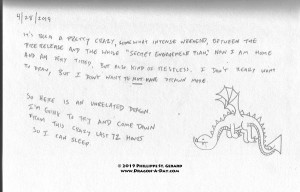 4/28/2019
It's been a pretty crazy, somewhat intense weekend, between the
release and the whole "secret engagement plan". Now I am home
and am very tired, but also kind of restless. I don't really want
to draw, but I don't want to not have drawn more
So here is an unrelated dragon
I'm going to try and come down
from this crazy last 72 hours
so I can sleep
© 2019 Phillippe St. Gerard
www.Dragon-A-Day.com